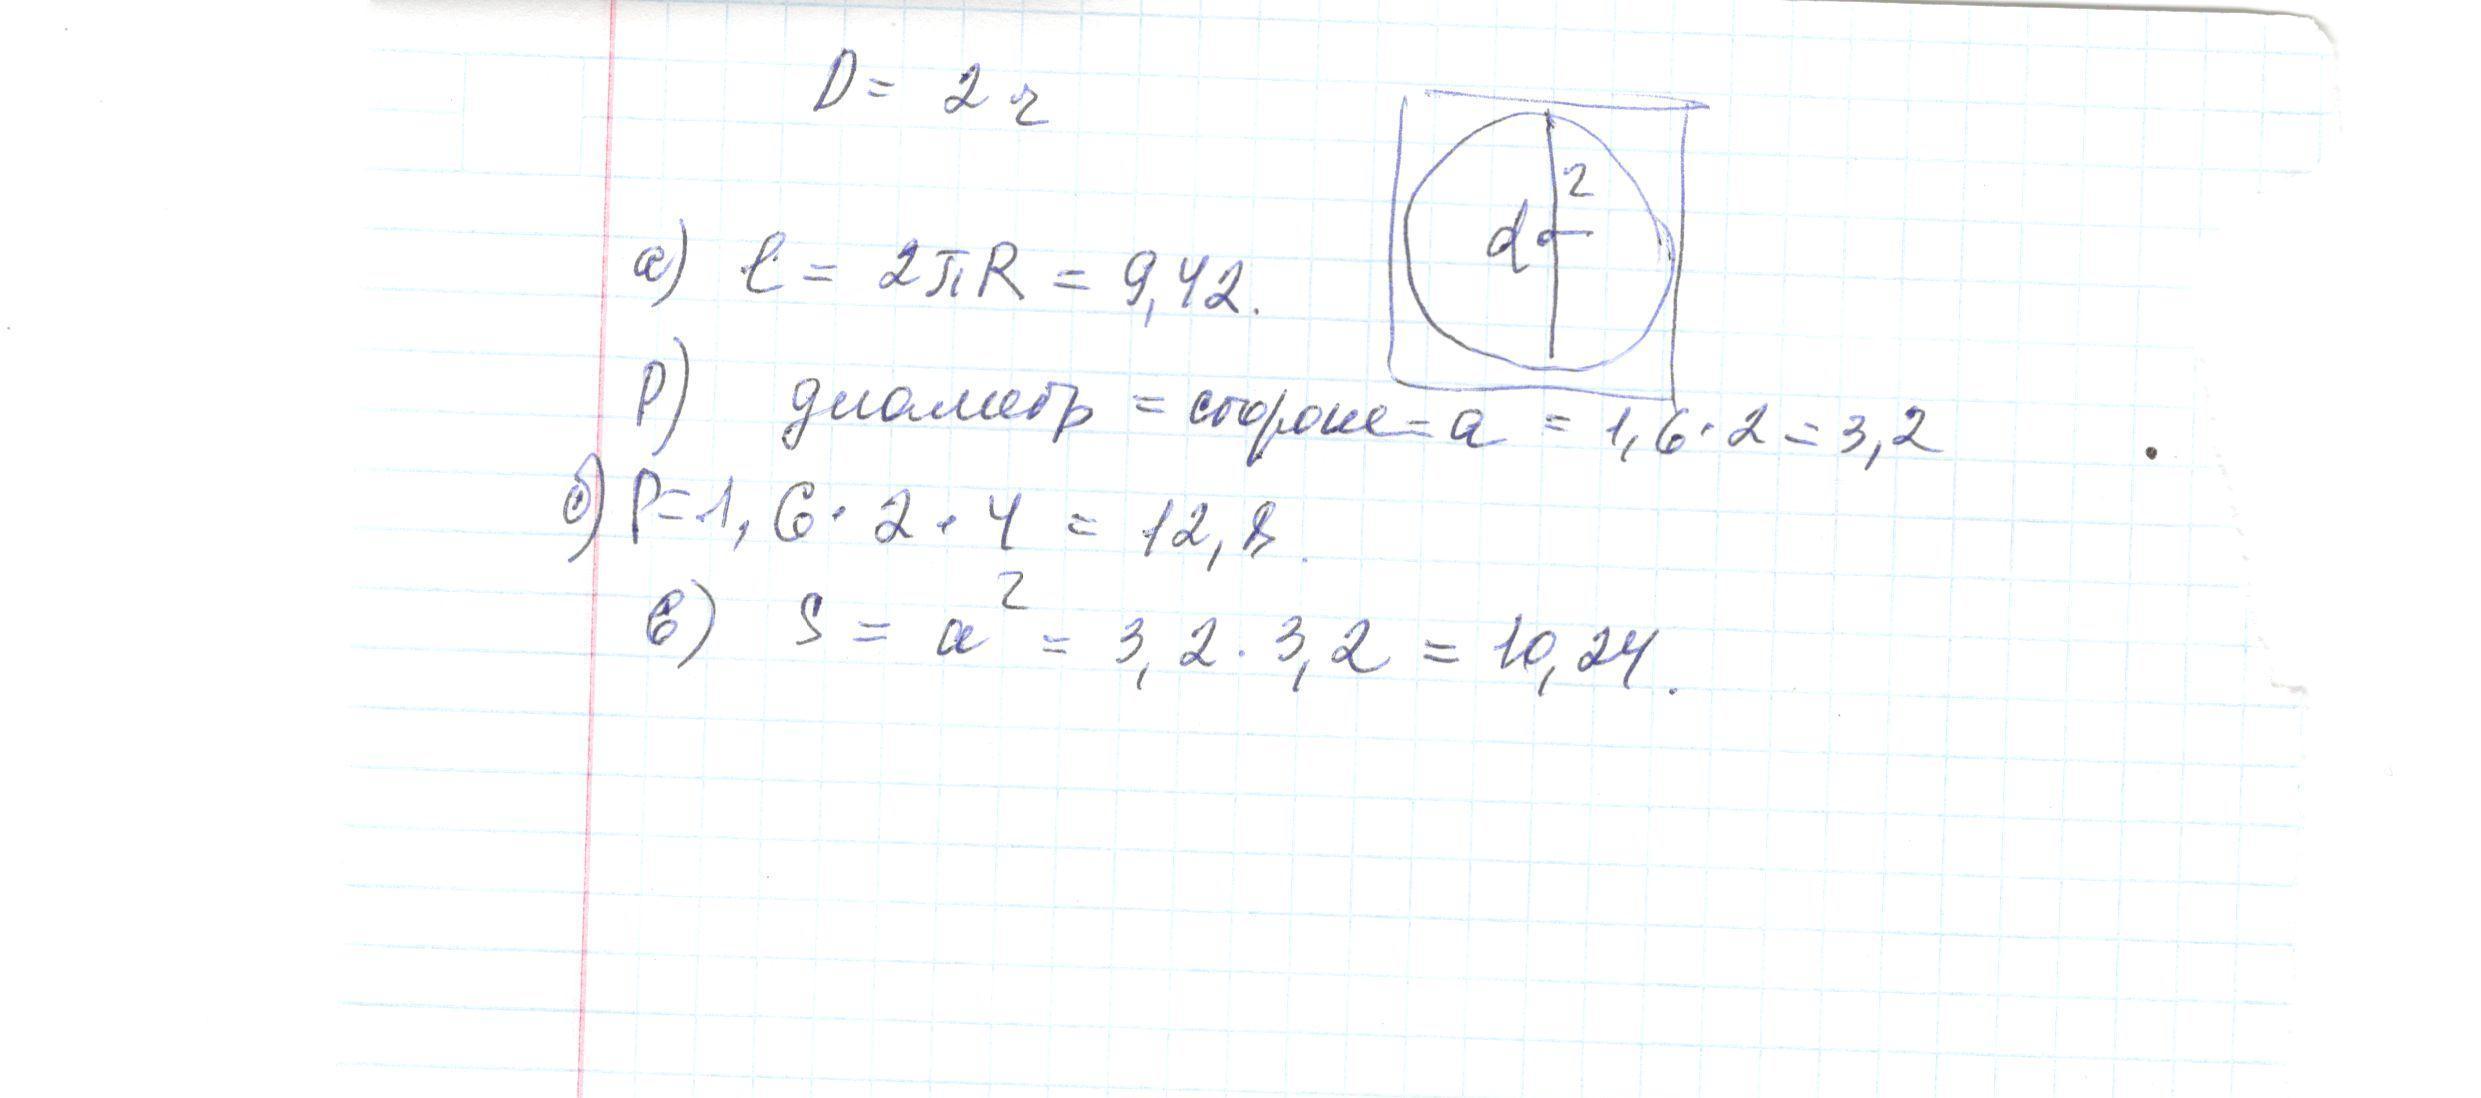 D = 2r
r
d
а) l = 2πR = 9,42.
P) диаметр = стороне = a = 1,6·2 = 3,2
б) P=1,6·2·4 = 12,8.
в) S = a² = 3,2·3,2 = 10,24.